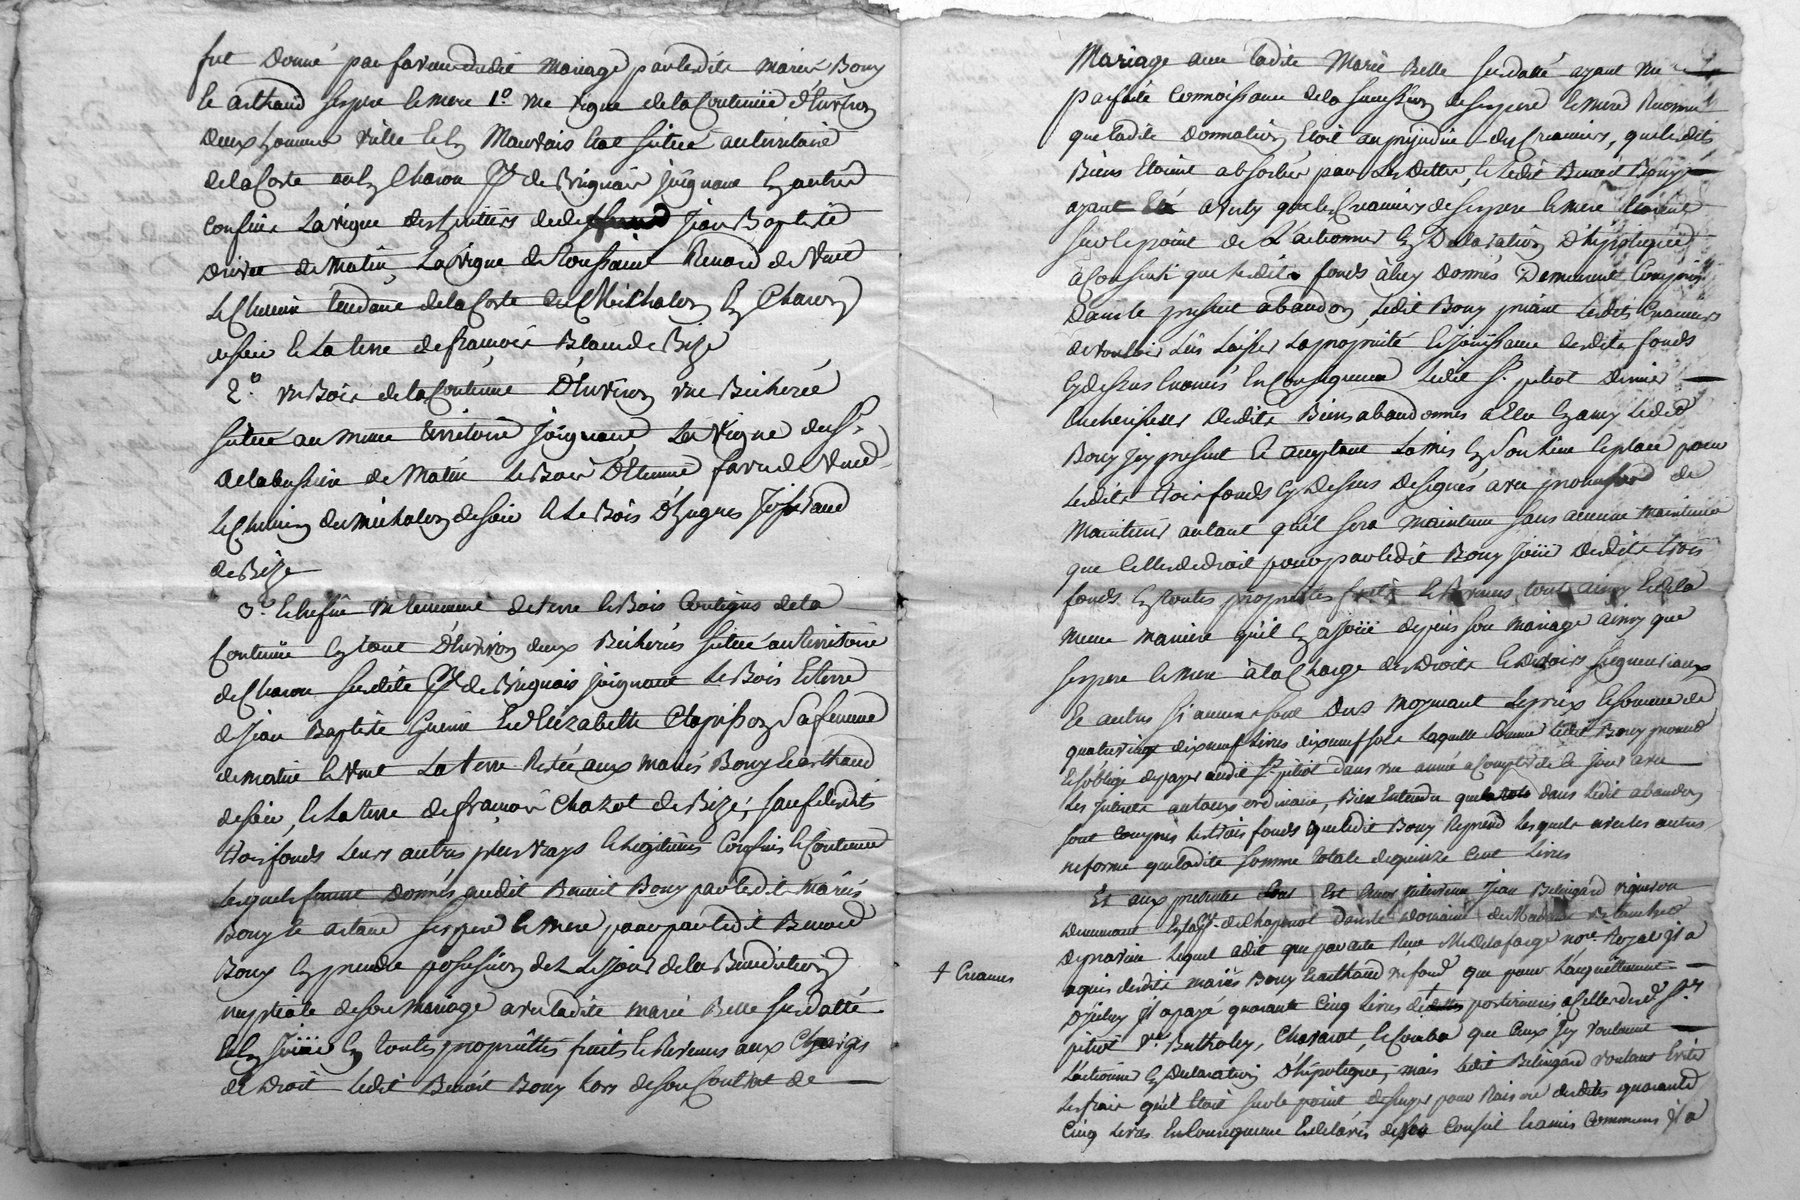 fut donné par faveur dudit mariage par lesdits mariés Bony
et arthaud ses pere et mere 1º. une vigne de la Contenüe d'Environ
deux hommes située au territoire
de la Coste ou En Charon de Brignais joignant
confins La vigne des heritiers de Jean Baptiste
de Matin, La vigne de Toussaint Renard de Vent
Le Chemin tendant de la Coste de En Charon
de soir et La terre de françois de Bize
2º. un Bois de la Contenüe D'Environ une Bicherée
située au meme territoire joignant La Vigne du Sr.
de Matin Le Bois D'Etienne favre de Vent
Le Chemin du michalon de soir et Le Bois D'hugues
de Bize
3º. et Enfin un tenement de terre et Bois Contigus de la
Contenüe En tout D'Environ deux Bicherées située au territoire
de Charon susdite de Brignais joignant Le Bois et terre
de Jean Baptiste Guerin et d'Elizabeth Clapisson Sa femme
de matin et Vent La terre Restée aux mariés Bony et arthaud
de soir, et La terre de françois Chazot de Bize, sauf desdits
trois fonds leurs autres plus vrays et Legitimes Confins et Contenüe
lesquels furent donnés audit Benoit Bony par lesdits Mariés
Bony et artaud ses pere et mere pour par ledit Benoit
Bony En prendre possession dez Le jour de la Bénédiction
nuptiale de son mariage avec ladite marie Belle susdatté
et En Joüir En toutes propriettés fruits et Revenus aux Charges
de Droit ledit Benoit Bony Lors de son Contrat de
Mariage avec ladite Marie Belle susdatté ayant eu
parfaite Connoissance de la succession de ses pere et mere Reconnut
que ladite donnation Etoit au prejudice des Creanciers, que lesdits
Biens Etoient absorbés par Les dettes, et ledit Benoit Bony
ayant Eté averty que les Creanciers de ses pere et mere Etoient
sur le point de L'actionner En Declaration D'hypoteque
à Consenti que lesdits fonds à luy donnés Demeurent Compris
Dans le present abandon, ledit Bony priant lesdits Creanciers
de vouloir Luy Laisser La proprieté et joüissance desdits fonds
Cy dessus Enoncés En Consequence ledit Sr. pitiot dernier
Encherisseur desdits Biens abandonnés a Elu En amy ledit
Bony icy present et acceptant La mis En Son Lieu et place pour
lesdits trois fonds Cy Dessus designés avec promesse de
Maintenir autant qu'il sera maintenu sans aucune maintenüe
que Celle de droit pour par ledit Bony Joüir desdits trois
fonds En toutes proprietes fruits et Revenus tout ainsy et de la
meme maniere qu'il En a Joüi depuis son mariage ainsy que
ses pere et mere à la Charge des Droits et Devoirs seigneuriaux
Et autres si aucuns sont Dus Moyenant Le prix et somme de
quatre vingt dix neuf Livres dix neuf sols Laquelle Somme ledit Bony promet
et s'oblige de payer audit Sr. pitiot dans une année a Compter de Ce jour avec
Les Interets au taux ordinaire, Bien Entendu que dans ledit abandon
sont Compris les trois fonds que ledit Bony Reprend lesquels avec les autres
ne forme que ladite somme totale de quinze Cent Livres
Et aux presentes Est Encor Intervenu Jean Belingard vigneron
demeurant En la de Chaponost dans le Domaine de Madame
lequel a dit que par acte Reçu Me. Delafarge nore. Royal il a
aquis desdits mariés Bony et arthaud un fond que pour L'acquittement
D'iceluy il a payé quarante Cinq Livres de + portion a Celle dudit Sr.
pitiot Ve. Bertholey, Chavarot et Comba que Ceux Icy vouloient
L'actionner En Declaration D'hypoteque, mais ledit Belingard voulant Eviter
Les frais qu'il Etoit sur le point d'essuyer pour Raison desdites quarante
Cinq Livres En Consequence Et de Lavis de son Conseil et amis Communs il a
+ Creances